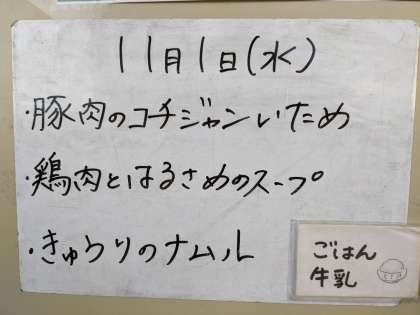 11月1日(水)
・豚肉のコチジャンいため
・鶏肉とはるさめのスープ
・きゅうりのナムル
ごはん
牛乳